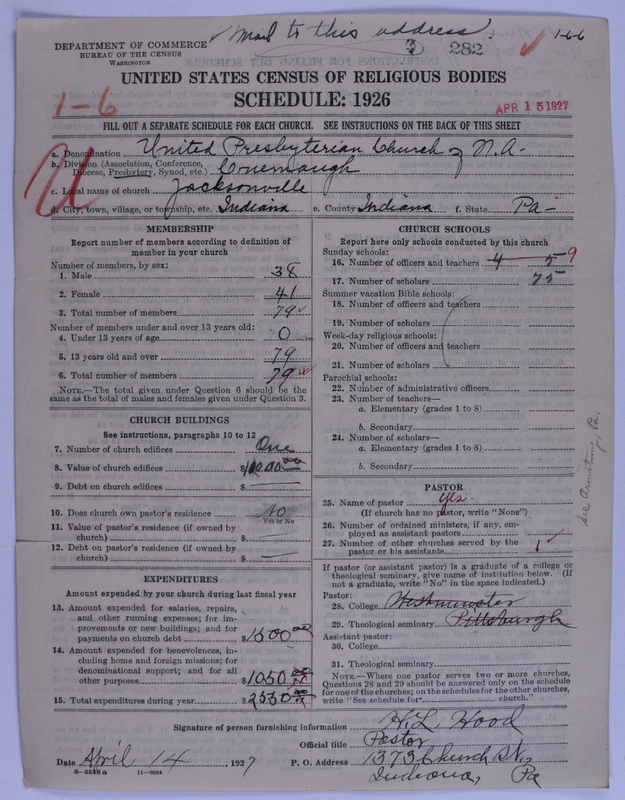 ✓ Mail to this address.
DEPARTMENT OF COMMERCE
BUREAU OF THE CENSUS
WASHINGTON
282
1-66
UNITED STATES CENSUS OF RELIGIOUS BODIES
SCHEDULE: 1926
1-6
APR 15 1927
FILL OUT A SEPARATE SCHEDULE FOR EACH CHURCH. SEE INSTRUCTIONS ON THE BACK OF THIS SHEET
a. Denomination United Presbyterian Church of N.A-
b. Division (Association, Conference, Diocese, Presbytery, Synod, etc.) Conemaugh
c. Local name of church Jacksonville
d. City, town, village, or township, etc. Indiana e. County Indiana f. State Pa-
MEMBERSHIP
Report number of members according to definition of member in your church
Number of members, by sex:
1. Male 38
2. Female 41
3. Total number of members 79
Number of members under and over 13 years old:
4. Under 13 years of age 0
5. 13 years old and over 79
6. Total number of members 79
NOTE.—The total given under Question 6 should be the same as the total of males and females given under Question 3.
CHURCH BUILDINGS
See instructions, paragraphs 10 to 12
7. Number of church edifices One
8. Value of church edifices $
9. Debt on church edifices $
10. Does church own pastor's residence No
Yes or No
11. Value of pastor's residence (if owned by church) $
12. Debt on pastor's residence (if owned by church) $
EXPENDITURES
Amount expended by your church during last fiscal year
13. Amount expended for salaries, repairs, and other running expenses; for improvements or new buildings; and for payments on church debt $1500
14. Amount expended for benevolences, including home and foreign missions; for denominational support; and for all other purposes $1050
15. Total expenditures during year $2550
CHURCH SCHOOLS
Report here only schools conducted by this church
Sunday schools:
16. Number of officers and teachers 4 5 9
17. Number of scholars 75
Summer vacation Bible schools:
18. Number of officers and teachers
19. Number of scholars
Week-day religious schools:
20. Number of officers and teachers
21. Number of scholars
Parochial schools:
22. Number of administrative officers
23. Number of teachers—
a. Elementary (grades 1 to 8)
b. Secondary
24. Number of scholars—
a. Elementary (grades 1 to 8)
b. Secondary
See Armstrong, Pa.
PASTOR
25. Name of pastor yes
(If church has no pastor, write "None")
26. Number of ordained ministers, if any, employed as assistant pastors
27. Number of other churches served by the pastor or his assistants 1
If pastor (or assistant pastor) is a graduate of a college or theological seminary, give name of institution below. (If not a graduate, write "No" in the space indicated.)
Pastor:
28. College Westminster
29. Theological seminary Pittsburgh
Assistant pastor:
30. College
31. Theological seminary
NOTE.—Where one pastor serves two or more churches, Questions 28 and 29 should be answered only on the schedule for one of the churches; on the schedules for the other churches, write "See schedule for church."
Signature of person furnishing information H. L. Hood
Official title Pastor
Date April 14, 1927 P. O. Address 1373 Church St.,
Indiana, Pa
8-5518a 11-9034